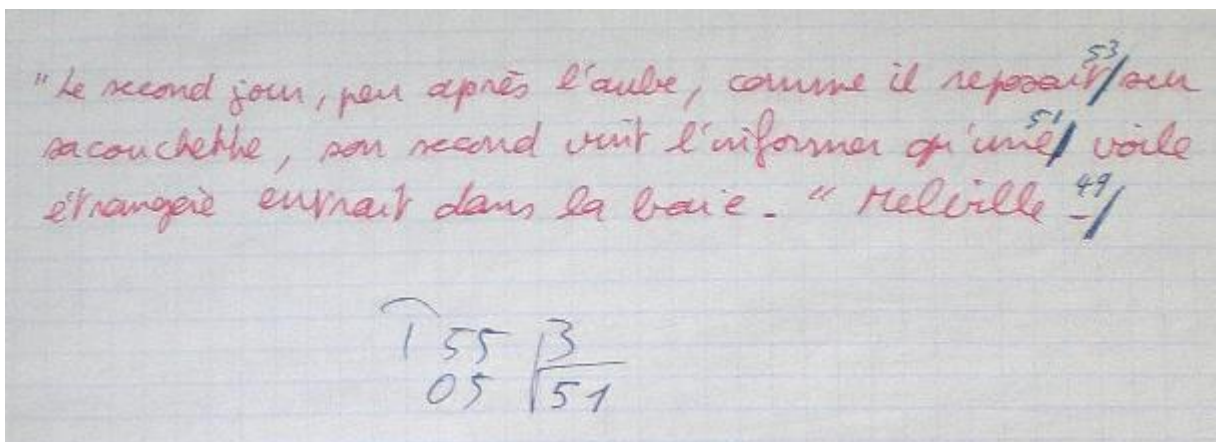 "Le second jour, peu après l'aube, comme il reposait/ 53 sur
sa couchette, son second vint l'informer qu'une/ 51 voile
étrangère entrait dans la baie. " Melville - 49/
155 3
05 51